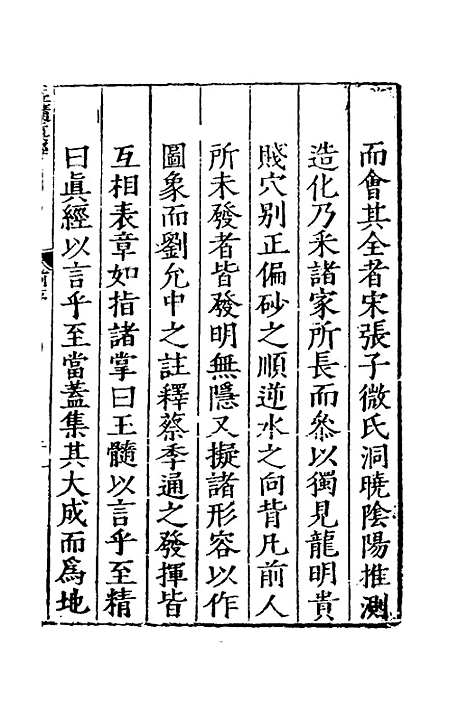 而會其全者宋張子微氏洞曉陰陽推測
造化乃采諸家所長而叅以獨見龍明貴
賤穴别正偏砂之順逆水之向背凡前人
所未發者皆發明無隱又擬諸形容以作
圖象而劉允中之註釋蔡季通之發揮皆
互相表章如指諸掌曰玉髓以言乎至精
曰眞經以言乎至當蓋集其大成而爲地